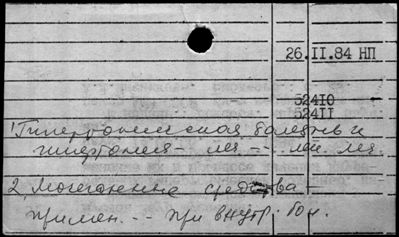 26.II.84 НП
52410
52411
1. Гипертоническая болезнь и
гипертония -
2. Мочегонные средства -
примен. -- при внутр. бол.